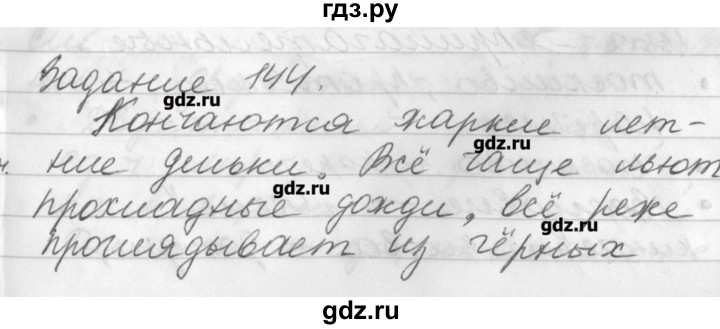 гдз.ру
Задание 144.
gdz.ru
Кончаются жаркие лет-
ние деньки. Всё чаще льют
gdz.ru
прохладные дожди, всё реже
проглядывает из чёрных
gdz.ru
gdz.ru